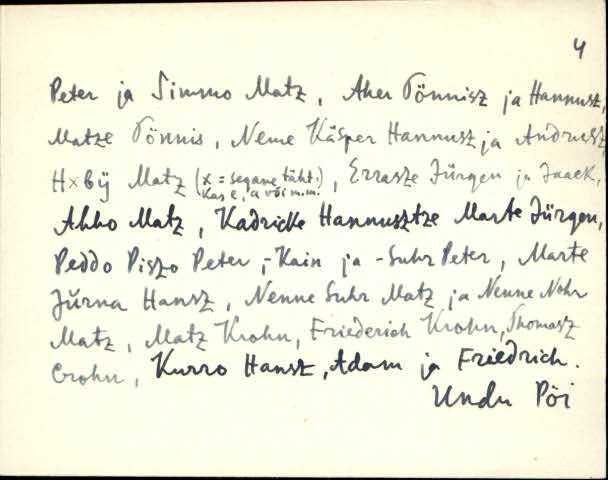 4
Peter ja Simmo Matz, Aher Tönnisz ja Hannusz,
Matze Tönnis, Neme Käsper Hannusz ja Andresz
Hxbÿ Matz (x = segane täht.), Errasze Jürgen ja Jaack,
kas e, a või m.m.
Ahho Matz, Kadricke Hannusztze Marte Jürgen,
Peddo Piszo Peter, -Kain ja -Suhr Peter, Marte
Jürna Hansz, Nenne Suhr Matz ja Nenne Nohr
Matz, Matz Krohn, Friederich Krohn, Thomasz
Crohn, Kurro Hansz, Adam ja Friedrich.
Undu Pöi